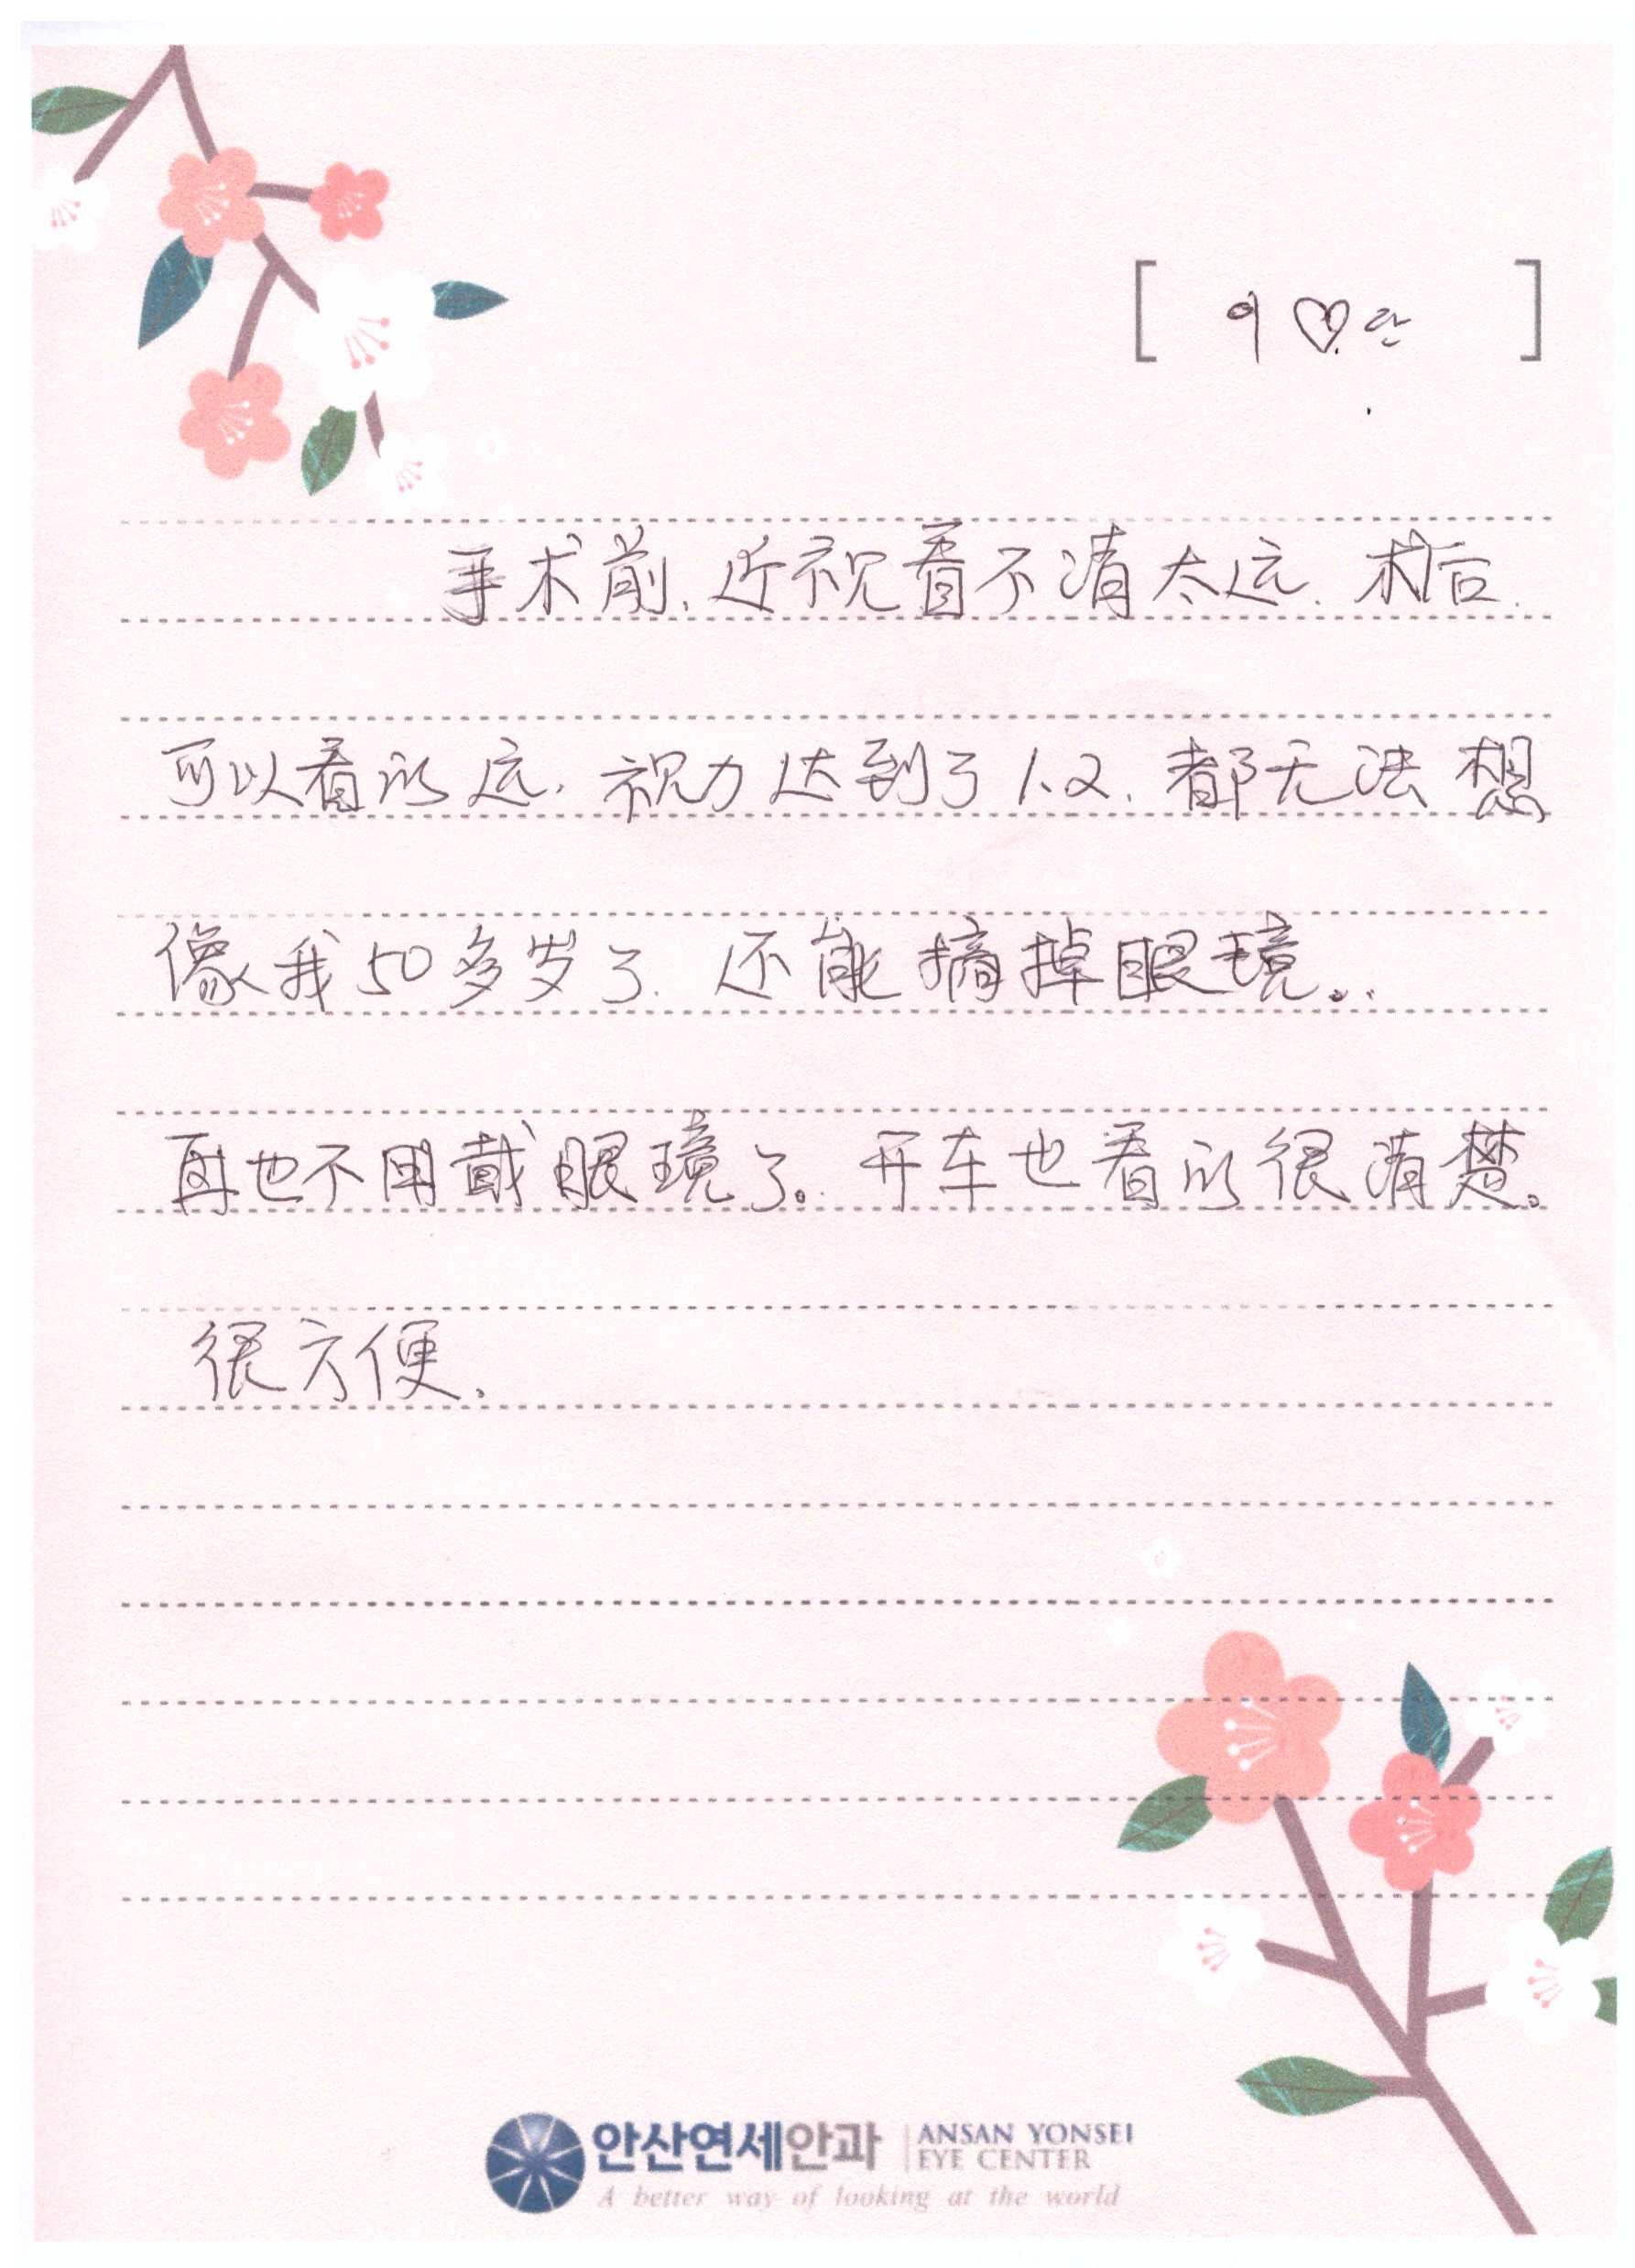 [ 이♡란 ]
手术前.近视看不清太远.术后.
可以看的远.视力达到了1.2.都无法想
像我50多岁了.还能摘掉眼镜..
再也不用戴眼镜了。开车也看的很清楚。
很方便.
안산연세안과 ANSAN YONSEI
EYE CENTER
A better way of looking at the world